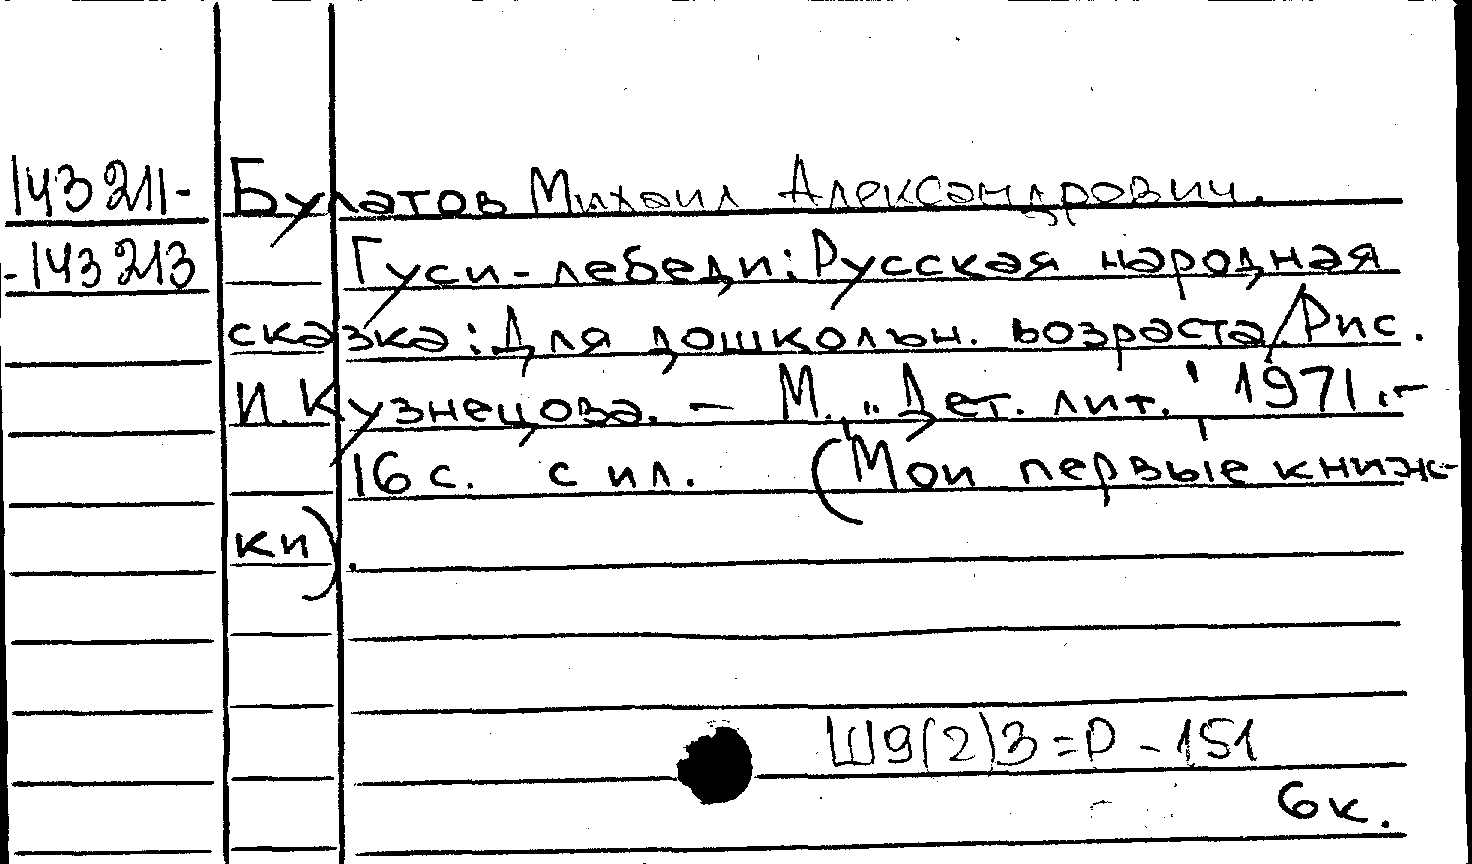 143211- Булатов Михаил Александрович.
-143213 Гуси-лебеди: Русская народная
сказка: Для дошкольн. возраста/Рис.
И. Кузнецова. – М., „Дет. лит.‘, 1971.–
16 с. с ил. (Мои первые книж-
ки).
Ш9(2)3=Р – 151
6к.